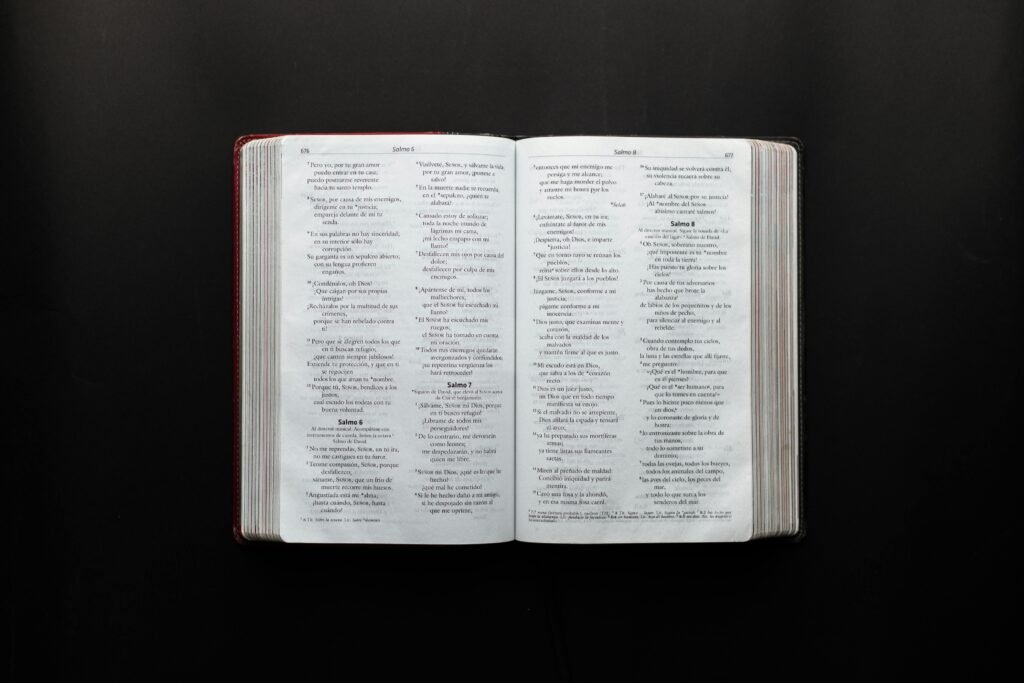 676
Salmo 6
⁷Pero yo, por tu gran amor
puedo entrar en tu casa;
puedo postrarme reverente
hacia tu santo templo.
⁸Señor, por causa de mis enemigos,
dirígeme en tu *justicia;
empareja delante de mí tu
senda.
⁹En sus palabras no hay sinceridad;
en su interior sólo hay
corrupción.
Su garganta es un sepulcro abierto;
con su lengua profieren
engaños.
¹⁰¡Condénalos, oh Dios!
¡Que caigan por sus propias
intrigas!
¡Recházalos por la multitud de sus
crímenes,
porque se han rebelado contra
ti!
¹¹Pero que se alegren todos los que
en ti buscan refugio;
¡que canten siempre jubilosos!
Extiende tu protección, y que en ti
se regocijen
todos los que aman tu *nombre.
¹²Porque tú, Señor, bendices a los
justos;
cual escudo los rodeas con tu
buena voluntad.
Salmo 6
Al director musical. Acompáñese con
instrumentos de cuerda. Sobre la octava.
Salmo de David.
¹No me reprendas, Señor, en tu ira;
no me castigues en tu furor.
²Tenme compasión, Señor, porque
desfallezco;
sáname, Señor, que un frío de
muerte recorre mis huesos.
³Angustiada está mi *alma;
¿hasta cuándo, Señor, hasta
cuándo?
⁴Vuélvete, Señor, y sálvame la vida;
por tu gran amor, ¡ponme a
salvo!
⁵En la muerte nadie te recuerda;
en el *sepulcro, ¿quién te
alabará?
⁶Cansado estoy de sollozar;
toda la noche inundo de
lágrimas mi cama,
¡mi lecho empapo con mi
llanto!
⁷Desfallecen mis ojos por causa del
dolor;
desfallecen por culpa de mis
enemigos.
⁸¡Apártense de mí, todos los
malhechores,
que el Señor ha escuchado mi
llanto!
⁹El Señor ha escuchado mis
ruegos;
el Señor ha tomado en cuenta
mi oración.
¹⁰Todos mis enemigos quedarán
avergonzados y confundidos;
¡su repentina vergüenza los
hará retroceder!
Salmo 7
*Sigaión de David, que elevó al Señor acerca
de Cus el benjaminita.
¹¡Sálvame, Señor mi Dios, porque
en ti busco refugio!
¡Líbrame de todos mis
perseguidores!
²De lo contrario, me devorarán
como leones;
me despedazarán, y no habrá
quien me libre.
³Señor mi Dios, ¿qué es lo que he
hecho?
¿qué mal he cometido?
⁴Si le he hecho daño a mi amigo,
si he despojado sin razón al
que me oprime,
Salmo 8
677
⁵entonces que mi enemigo me
persiga y me alcance;
que me haga morder el polvo
y arrastre mi honra por los
suelos.
*Selah
⁶¡Levántate, Señor, en tu ira;
enfréntate al furor de mis
enemigos!
¡Despierta, oh Dios, e imparte
*justicia!
⁷Que en torno tuyo se reúnan los
pueblos;
reina sobre ellos desde lo alto.
⁸¡El Señor juzgará a los pueblos!
Júzgame, Señor, conforme a mi
justicia;
págame conforme a mi
inocencia.
⁹Dios justo, que examinas mente y
corazón,
acaba con la maldad de los
malvados
y mantén firme al que es justo.
¹⁰Mi escudo está en Dios,
que salva a los de *corazón
recto.
¹¹Dios es un juez justo,
un Dios que en todo tiempo
manifiesta su enojo.
¹²Si el malvado no se arrepiente,
Dios afilará la espada y tensará
el arco;
¹³ya ha preparado sus mortíferas
armas;
ya tiene listas sus llameantes
saetas.
¹⁴Miren al preñado de maldad:
Concibió iniquidad y parirá
mentira.
¹⁵Cavó una fosa y la ahondó,
y en esa misma fosa caerá.
¹⁶Su iniquidad se volverá contra él;
su violencia recaerá sobre su
cabeza.
¹⁷¡Alabaré al Señor por su justicia!
¡Al *nombre del Señor
altísimo cantaré salmos!
Salmo 8
Al director musical. Sígase la tonada de «La
canción del lagar». Salmo de David.
¹Oh Señor, soberano nuestro,
¡qué imponente es tu *nombre
en toda la tierra!
¡Has puesto tu gloria sobre los
cielos!
²Por causa de tus adversarios
has hecho que brote la
alabanza
de labios de los pequeñitos y de los
niños de pecho,
para silenciar al enemigo y al
rebelde.
³Cuando contemplo tus cielos,
obra de tus dedos,
la luna y las estrellas que allí fijaste,
⁴me pregunto:
«¿Qué es el *hombre, para que
en él pienses?
¿Qué es el *ser humano, para
que lo tomes en cuenta?»
⁵Pues lo hiciste poco menos que
un dios,
y lo coronaste de gloria y de
honra:
⁶lo entronizaste sobre la obra de
tus manos,
todo lo sometiste a su
dominio;
⁷todas las ovejas, todos los bueyes,
todos los animales del campo,
⁸las aves del cielo, los peces del
mar,
y todo lo que surca los
senderos del mar.